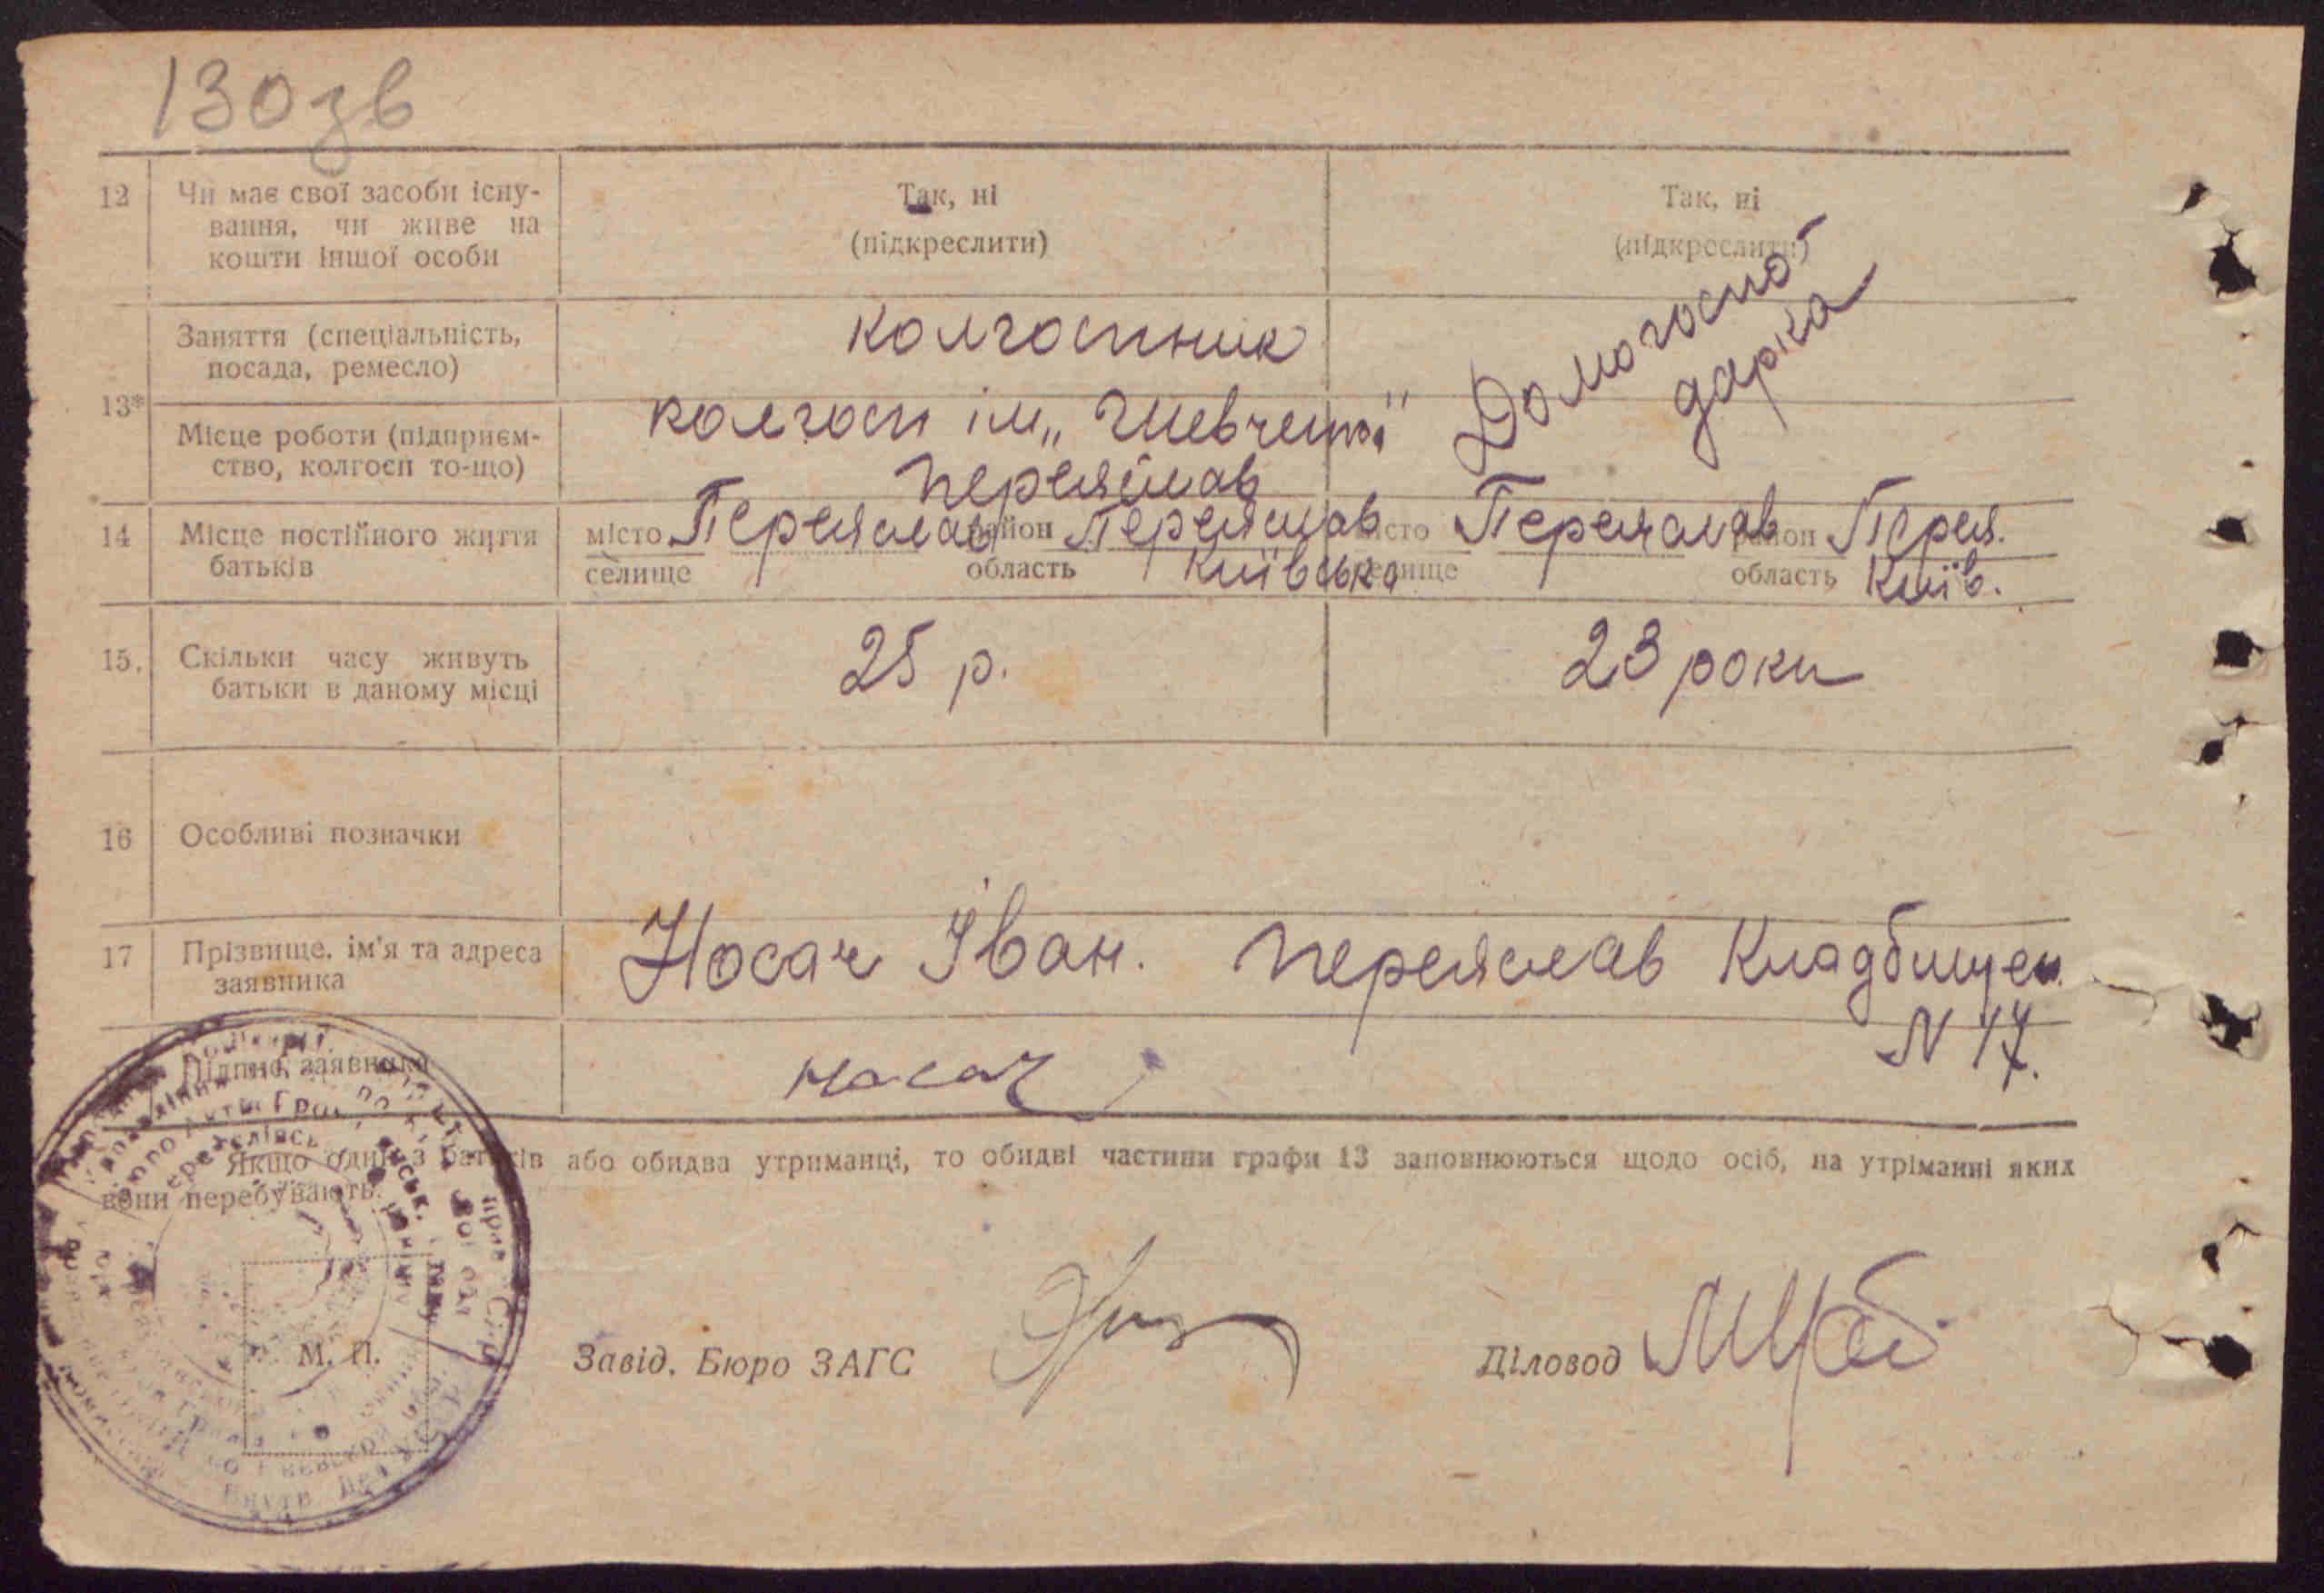 130зв
12 Чи має свої засоби існу-
вання, чи живе на
кошти іншої особи
Так, ні
(підкреслити)
Так, ні
(підкреслити)
13*
Заняття (спеціальність,
посада, ремесло)
колгоспник
Домогоспо-
дарка
Місце роботи (підприєм-
ство, колгосп то-що)
колгосп ім „Шевченка"
Переяслав
14 Місце постійного життя
батьків
місто Переяслав район Переяслав
селище область Київська
місто Переяслав район Перея.
селище область Київ.
15. Скільки часу живуть
батьки в даному місці
25 р.
23 роки
16 Особливі позначки
17 Прізвище, ім'я та адреса
заявника
Носач Іван. Переяслав Кладбищен.
N 17.
Підпис заявника
Носач
Якщо один з батьків або обидва утриманці, то обидві частини графи 13 заповнюються щодо осіб, на утріманні яких
вони перебувають.
М. П.
Завід. Бюро ЗАГС
Діловод